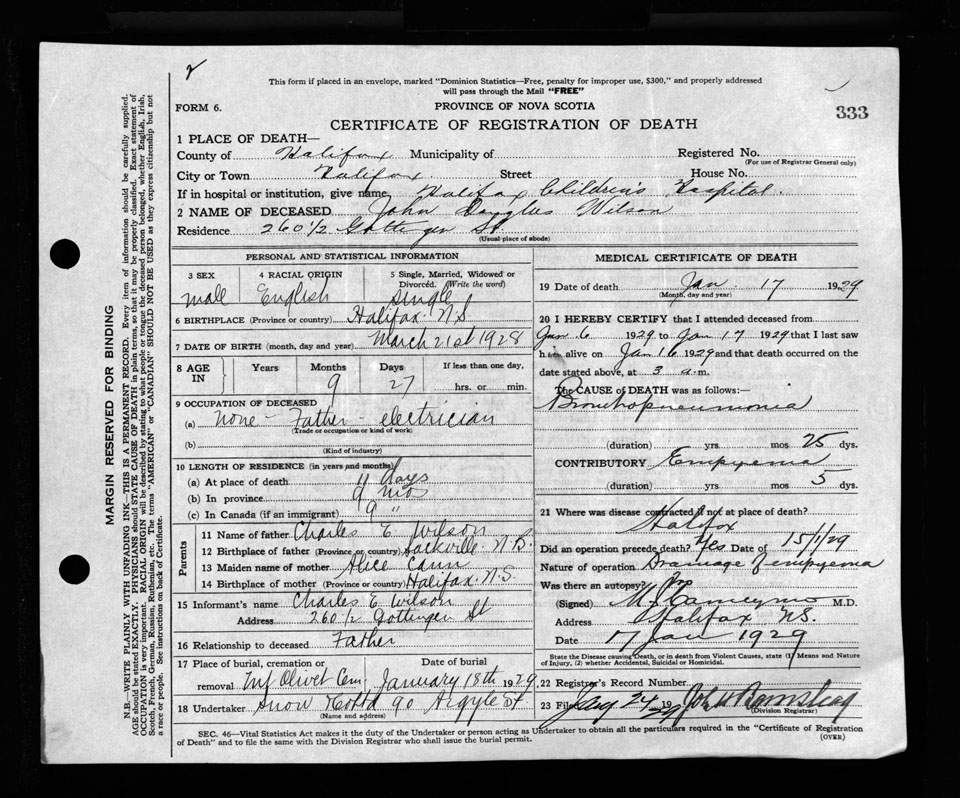 2
This form if placed in an envelope, marked "Dominion Statistics—Free, penalty for improper use, $300," and properly addressed
will pass through the Mail "FREE"
FORM 6.
PROVINCE OF NOVA SCOTIA
333
CERTIFICATE OF REGISTRATION OF DEATH
1 PLACE OF DEATH—
County of Halifax Municipality of Registered No.
(For use of Registrar General only)
City or Town Halifax. Street House No.
If in hospital or institution, give name Halifax Children's Hospital.
2 NAME OF DECEASED John Douglas Wilson
Residence 260 1/2 Gottingen St.
(Usual place of abode)
PERSONAL AND STATISTICAL INFORMATION
3 SEX 4 RACIAL ORIGIN 5 Single, Married, Widowed or
Divorced. (Write the word)
Male English Single
6 BIRTHPLACE (Province or country) Halifax N.S
7 DATE OF BIRTH (month, day and year) March 21st 1928
8 AGE IN Years Months Days If less than one day,
9 27 hrs. or min.
9 OCCUPATION OF DECEASED
(a) None – Father electrician
(Trade or occupation or kind of work)
(b)
(Kind of industry)
10 LENGTH OF RESIDENCE (in years and months)
(a) At place of death 11 days
(b) In province 9 mos
(c) In Canada (if an immigrant) 9 "
Parents
11 Name of father Charles E. Wilson
12 Birthplace of father (Province or country) Sackville N.B.
13 Maiden name of mother Alice Cann
14 Birthplace of mother (Province or country) Halifax N.S.
15 Informant's name Charles E. Wilson
Address 260 1/2 Gottingen St
16 Relationship to deceased Father
17 Place of burial, cremation or Date of burial
removal Mt Olivet Cem January 18th 1929
18 Undertaker Snow & Co Ltd 90 Argyle St.
(Name and address)
MEDICAL CERTIFICATE OF DEATH
19 Date of death Jan. 17 1929
(Month, day and year)
20 I HEREBY CERTIFY that I attended deceased from
Jan 6 1929 to Jan 17 1929 that I last saw
him alive on Jan 16 1929 and that death occurred on the
date stated above, at 3 a.m.
The CAUSE OF DEATH was as follows:
Bronchopneumonia
(duration) yrs mos 25 dys.
CONTRIBUTORY Empyema
(duration) yrs mos 5 dys.
21 Where was disease contracted if not at place of death?
Halifax
Did an operation precede death? Yes Date of 15/1/29
Nature of operation Drainage of empyema
Was there an autopsy? No
(Signed) M.D.
Address Halifax N.S.
Date 17 Jan 1929
State the Disease causing Death, or in death from Violent Causes, state (1) Means and Nature
of Injury, (2) whether Accidental, Suicidal or Homicidal.
22 Register's Record Number
23 Filed Jany 24 1929
(Division Registrar)
SEC. 46—Vital Statistics Act makes it the duty of the Undertaker or person acting as Undertaker to obtain all the particulars required in the "Certificate of Registration
of Death" and to file the same with the Division Registrar who shall issue the burial permit.
(OVER)
MARGIN RESERVED FOR BINDING
N.B.—WRITE PLAINLY WITH UNFADING INK—THIS IS A PERMANENT RECORD. Every item of information should be carefully supplied.
AGE should be stated EXACTLY. PHYSICIANS should STATE CAUSE OF DEATH in plain terms, so that it may be properly classified. Exact statement of
OCCUPATION is very important. RACIAL ORIGIN will be described by stating to what people or tongue the deceased person belonged, whether English, Irish,
Scotch, French, German, Russian, Ruthenian, etc. The terms "AMERICAN" or "CANADIAN" SHOULD NOT BE USED as they express citizenship but not
a race or people. See instructions on back of Certificate.